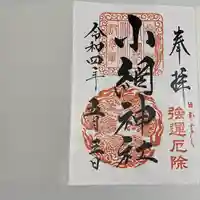 奉拝
強運厄除
小網神社
令和四年
五月三日